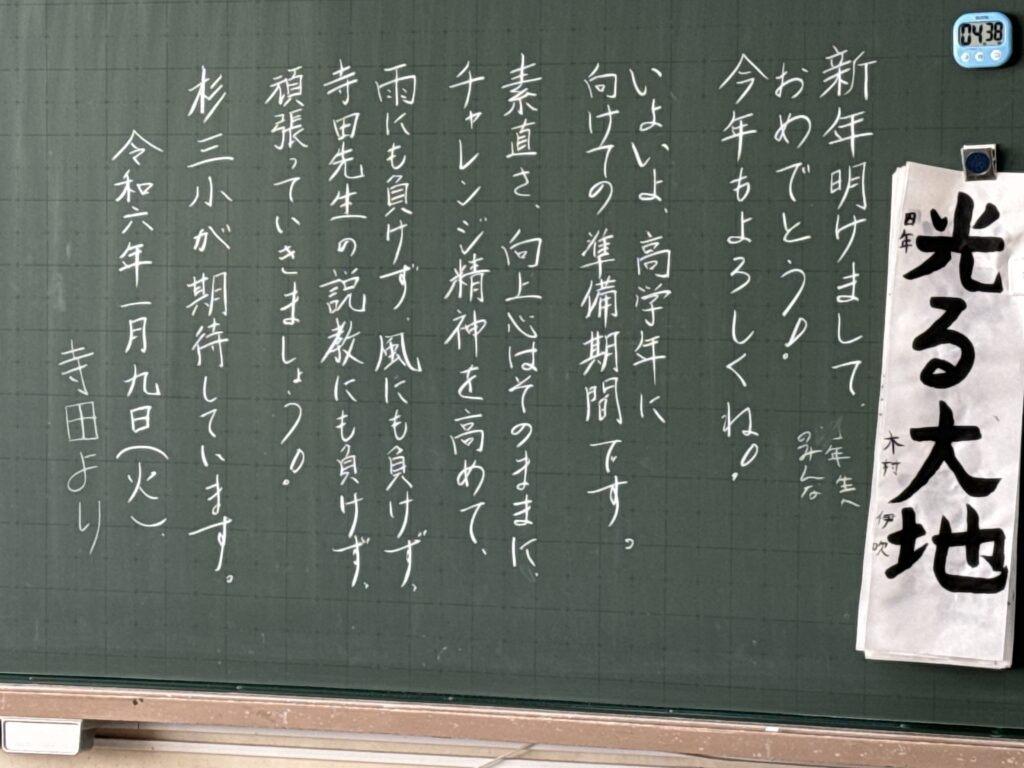 04.38
光る大地
四年
木村 伊吹
新年明けまして、
おめでとう!
今年もよろしくね!
年生へ
のみんな
いよいよ、高学年に
向けての準備期間です。
素直さ、向上心はそのままに、
チャレンジ精神を高めて、
雨にも負けず、風にも負けず、
寺田先生の説教にも負けず、
頑張っていきましょう!
杉三小が期待しています。
令和六年一月九日(火)
寺田より